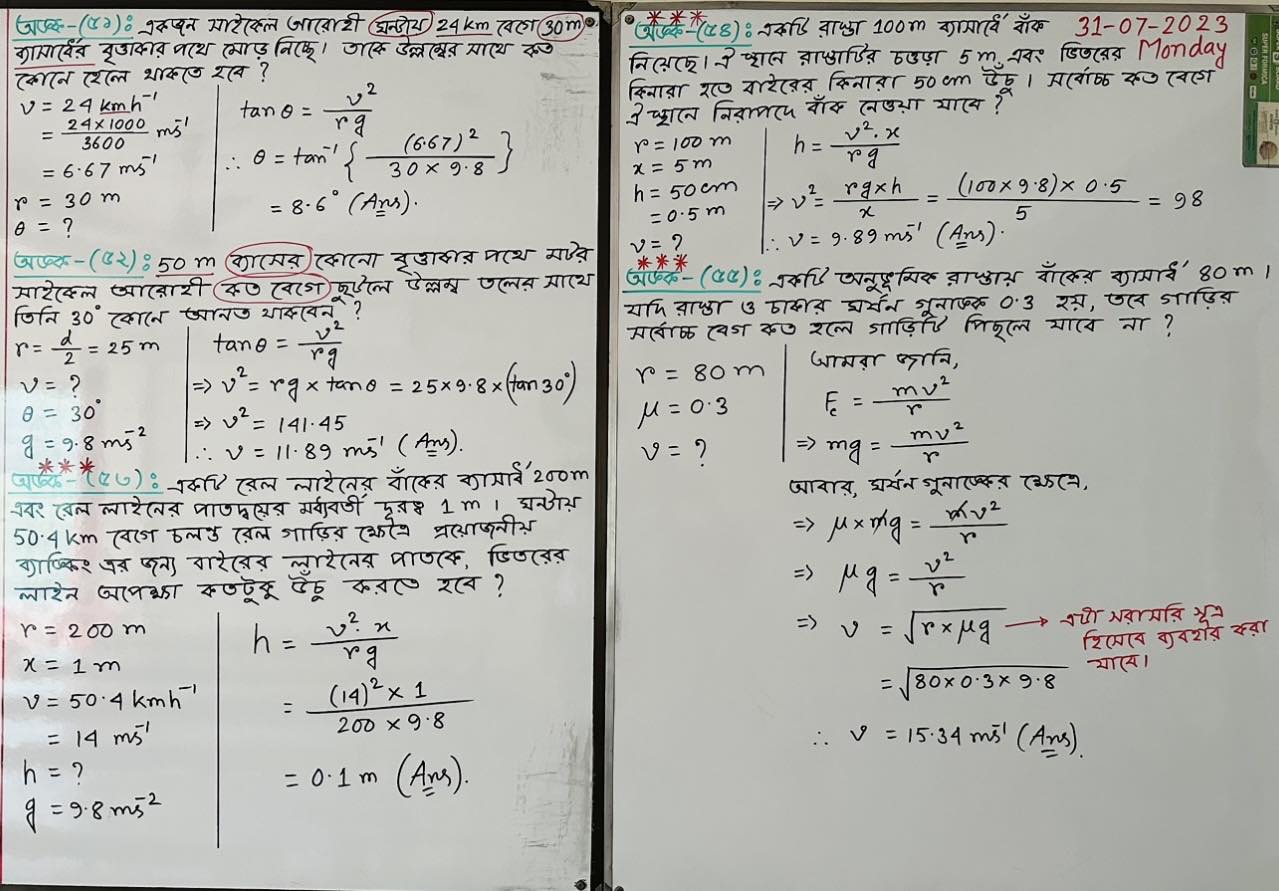 অঙ্ক-(৫১): একজন সাইকেল আরোহী ঘন্টায় 24 km বেগে 30 m
ব্যাসার্ধের বৃত্তাকার পথে মোড় নিচ্ছে। তাকে উল্লম্বের সাথে কত
কোনে হেলে থাকতে হবে ?
v = 24 kmh⁻¹
= 24×1000/3600 ms⁻¹
= 6.67 ms⁻¹
r = 30 m
θ = ?
tan θ = v²/rg
∴ θ = tan⁻¹ { (6.67)²/30 × 9.8 }
= 8.6° (Ans).
অঙ্ক-(৫২): 50 m ব্যাসের কোনো বৃত্তাকার পথে মটর
সাইকেল আরোহী কত বেগে ছুটলে উল্লম্ব তলের সাথে
তিনি 30° কোনে আনত থাকবেন ?
r = d/2 = 25 m
v = ?
θ = 30°
g = 9.8 ms⁻²
tan θ = v²/rg
⇒ v² = rg × tan θ = 25×9.8×(tan 30°)
⇒ v² = 141.45
∴ v = 11.89 ms⁻¹ (Ans).
***
অঙ্ক-(৫৩): একটি রেল লাইনের বাঁকের ব্যাসার্ধ 200m
এবং রেল লাইনের পাতদ্বয়ের মধ্যবর্তী দূরত্ব 1 m । ঘন্টায়
50.4 km বেগে চলন্ত রেল গাড়ির ক্ষেত্রে প্রয়োজনীয়
ব্যাঙ্কিং এর জন্য বাইরের লাইনের পাতকে, ভিতরের
লাইন অপেক্ষা কতটুকু উঁচু করতে হবে ?
r = 200 m
x = 1 m
v = 50.4 kmh⁻¹
= 14 ms⁻¹
h = ?
g = 9.8 ms⁻²
h = v².x/rg
= (14)² × 1/200 × 9.8
= 0.1 m (Ans).
***
অঙ্ক-(৫৪): একটি রাস্তা 100m ব্যাসার্ধে বাঁক
31-07-2023
Monday
নিয়েছে। ঐ স্থানে রাস্তাটির চওড়া 5 m এবং ভিতরের
কিনারা হতে বাইরের কিনারা 50 cm উঁচু । সর্বোচ্চ কত বেগে
ঐ স্থানে নিরাপদে বাঁক নেওয়া যাবে ?
r = 100 m
x = 5 m
h = 50 cm
= 0.5 m
v = ?
h = v².x/rg
⇒ v² = rg×h/x = (100×9.8)×0.5/5 = 98
∴ v = 9.89 ms⁻¹ (Ans).
***
অঙ্ক-(৫৫): একটি অনুভূমিক রাস্তায় বাঁকের ব্যাসার্ধ 80 m ।
যদি রাস্তা ও চাকার ঘর্ষন গুনাঙ্ক 0.3 হয়, তবে গাড়ির
সর্বোচ্চ বেগ কত হলে গাড়িটি পিছলে যাবে না ?
r = 80 m
μ = 0.3
v = ?
আমরা জানি,
F_c = mv²/r
⇒ mg = mv²/r
আবার, ঘর্ষন গুনাঙ্কের ক্ষেত্রে,
⇒ μ × mg = mv²/r
⇒ μg = v²/r
⇒ v = √(r × μg) → এটা সরাসরি সূত্র
হিসেবে ব্যবহার করা
যাবে।
= √(80×0.3×9.8)
∴ v = 15.34 ms⁻¹ (Ans).